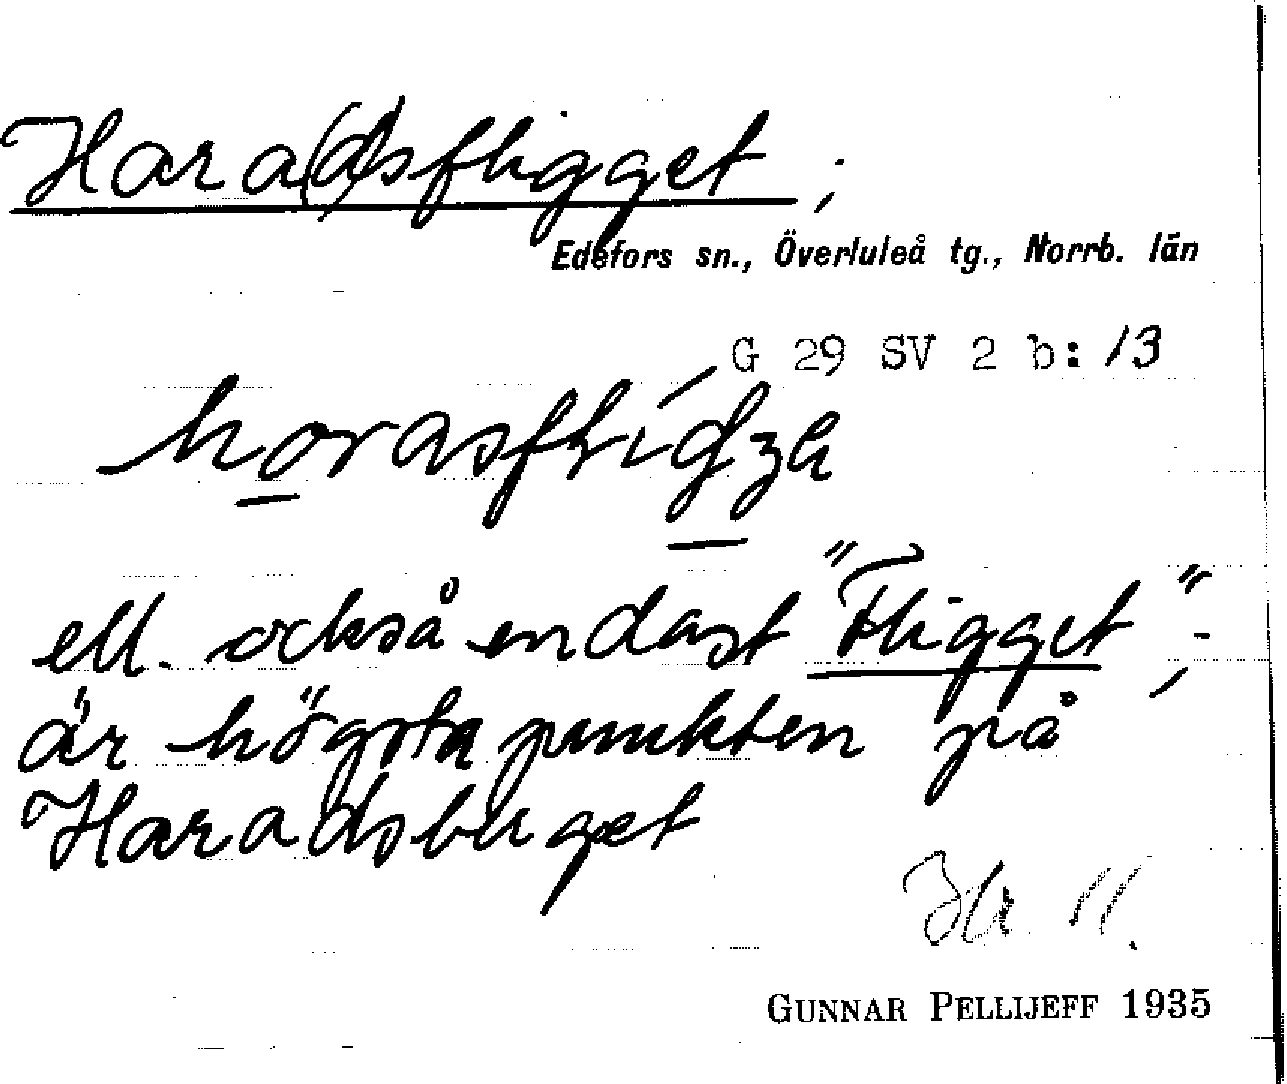 Hara(d)sfligget;
Edefors sn., Överluleå tg., Norrb. län
G 29 SV 2 b: 13
ell. också endast "Fligget";
är högsta punkten på
Haradsberget
GUNNAR PELLIJEFF 1935